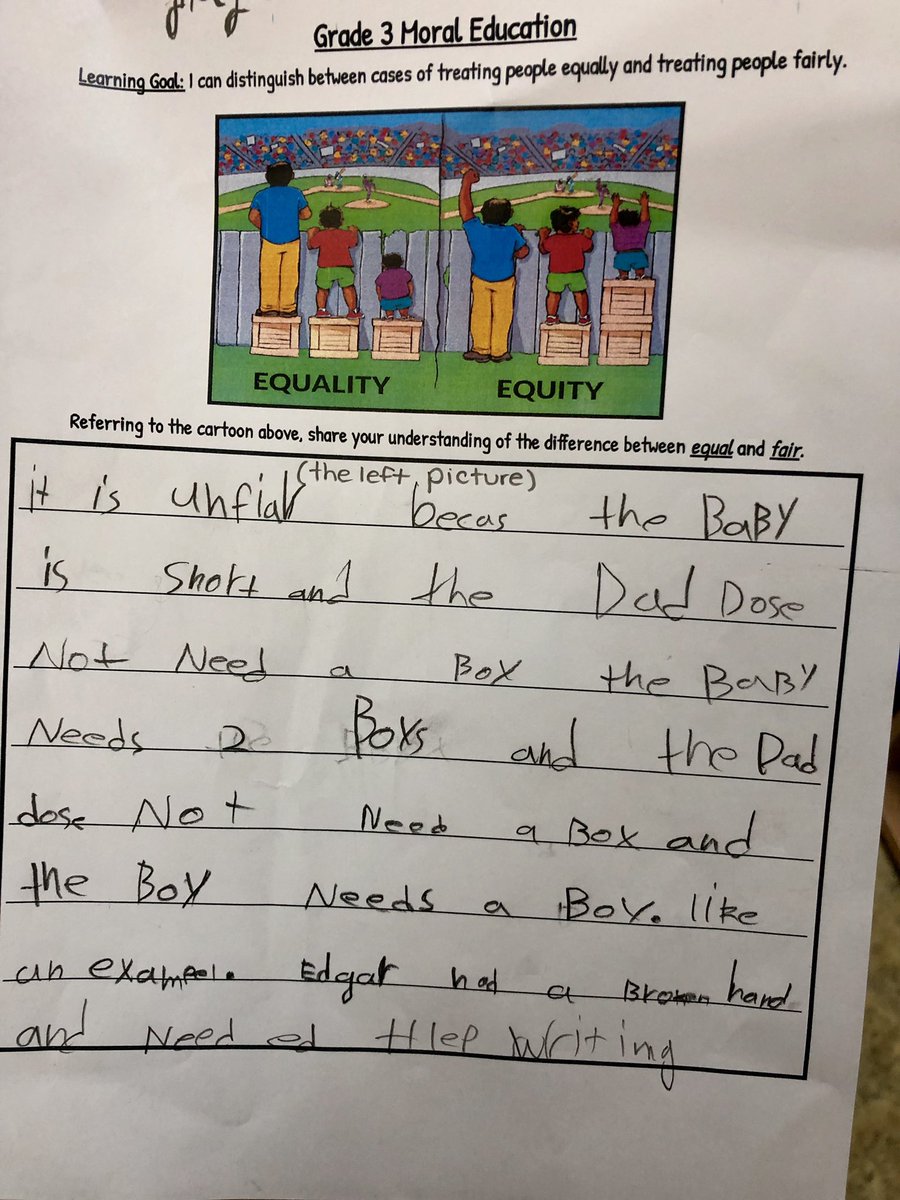 Grade 3 Moral Education
Learning Goal: I can distinguish between cases of treating people equally and treating people fairly.
EQUALITY
EQUITY
Referring to the cartoon above, share your understanding of the difference between equal and fair.
(the left picture)
it is unfiar becas the BaBY
is Short and the Dad Dose
Not Need a Box the BaBY
Needs 2 Boxs and the Dad
dose Not Need a Box and
the Boy Needs a Box. like
an exampel. Edgar had a Broken hand
and Need ed Hlep Writing